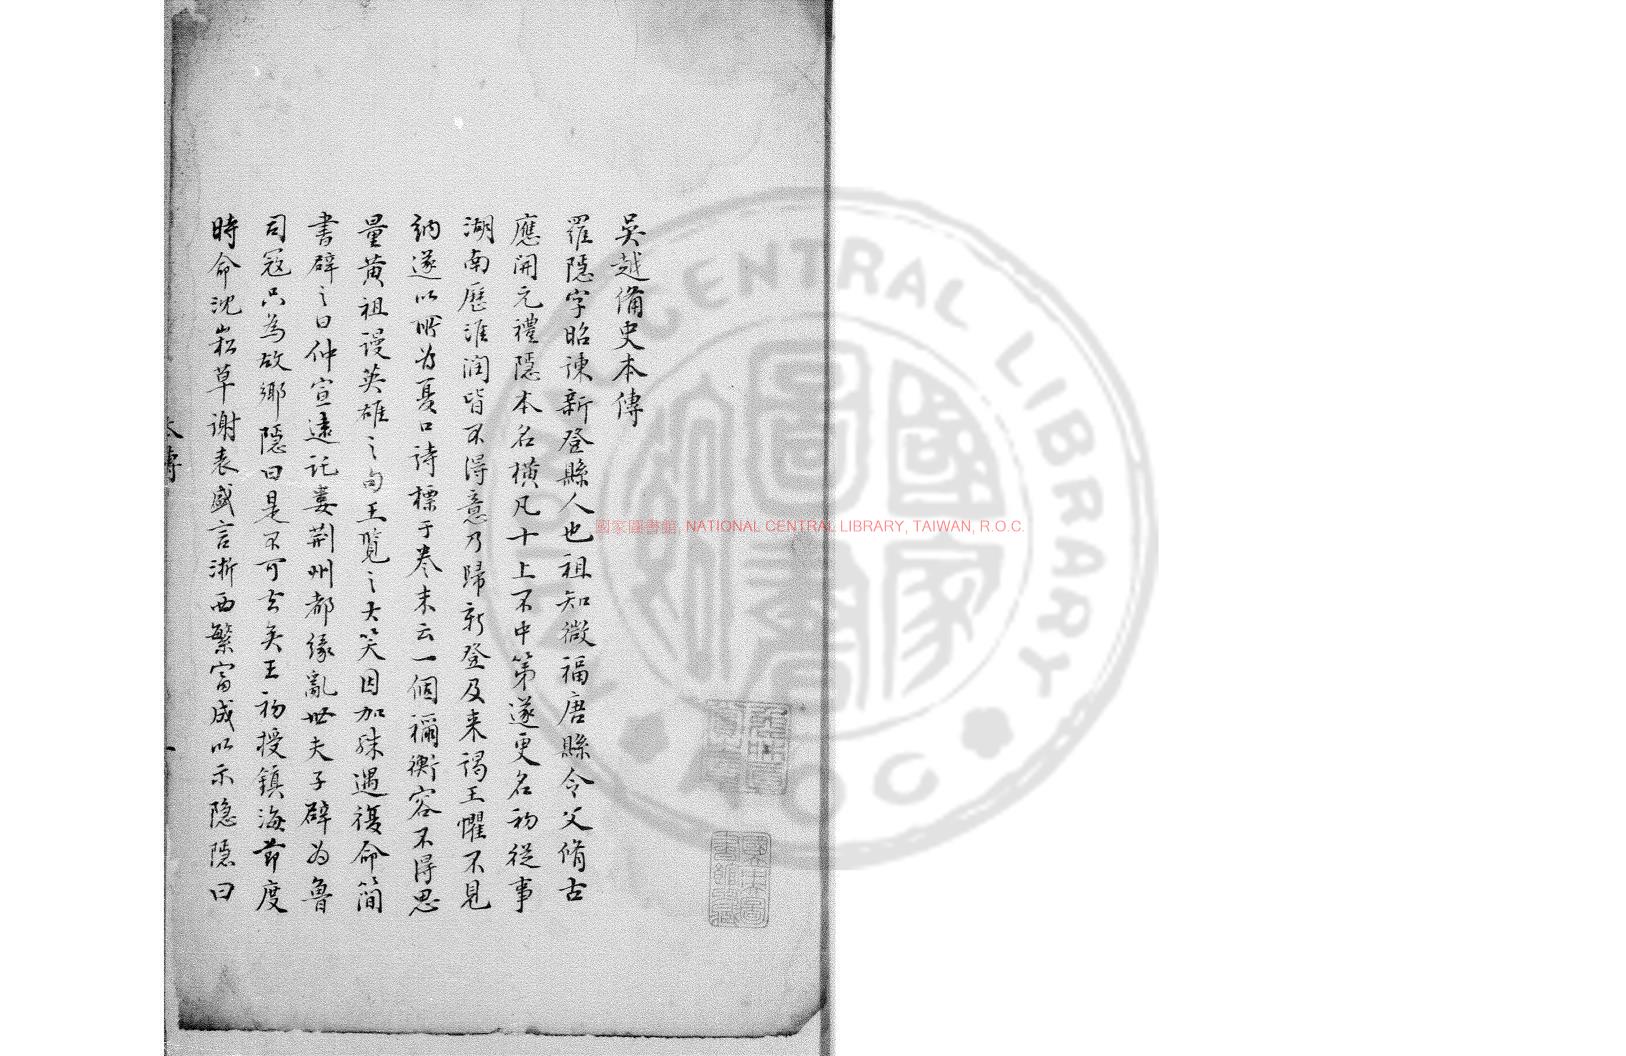 吳越備史本傳
羅隱字昭諫新登縣人也祖知微福唐縣令父脩古
應開元禮隱本名橫凡十上不中第遂更名初從事
湖南歷淮潤皆不得意乃歸新登及来謁王懼不見
納遂以所為夏口詩標于卷末云一個禰衡容不得思
量黃祖謾英雄之句王覽之大笑因加殊遇復命簡
書辟之曰仲宣遠託婁荆州都緣亂世夫子辟為魯
司寇只為故鄉隱曰是不可去矣王初授鎮海節度
時命沈崧草謝表盛言浙西繁富成以示隱隱曰
本傳
一
國家圖書館, NATIONAL CENTRAL LIBRARY, TAIWAN, R.O.C.
NATIONAL CENTRAL LIBRARY
ROC
國家圖書館